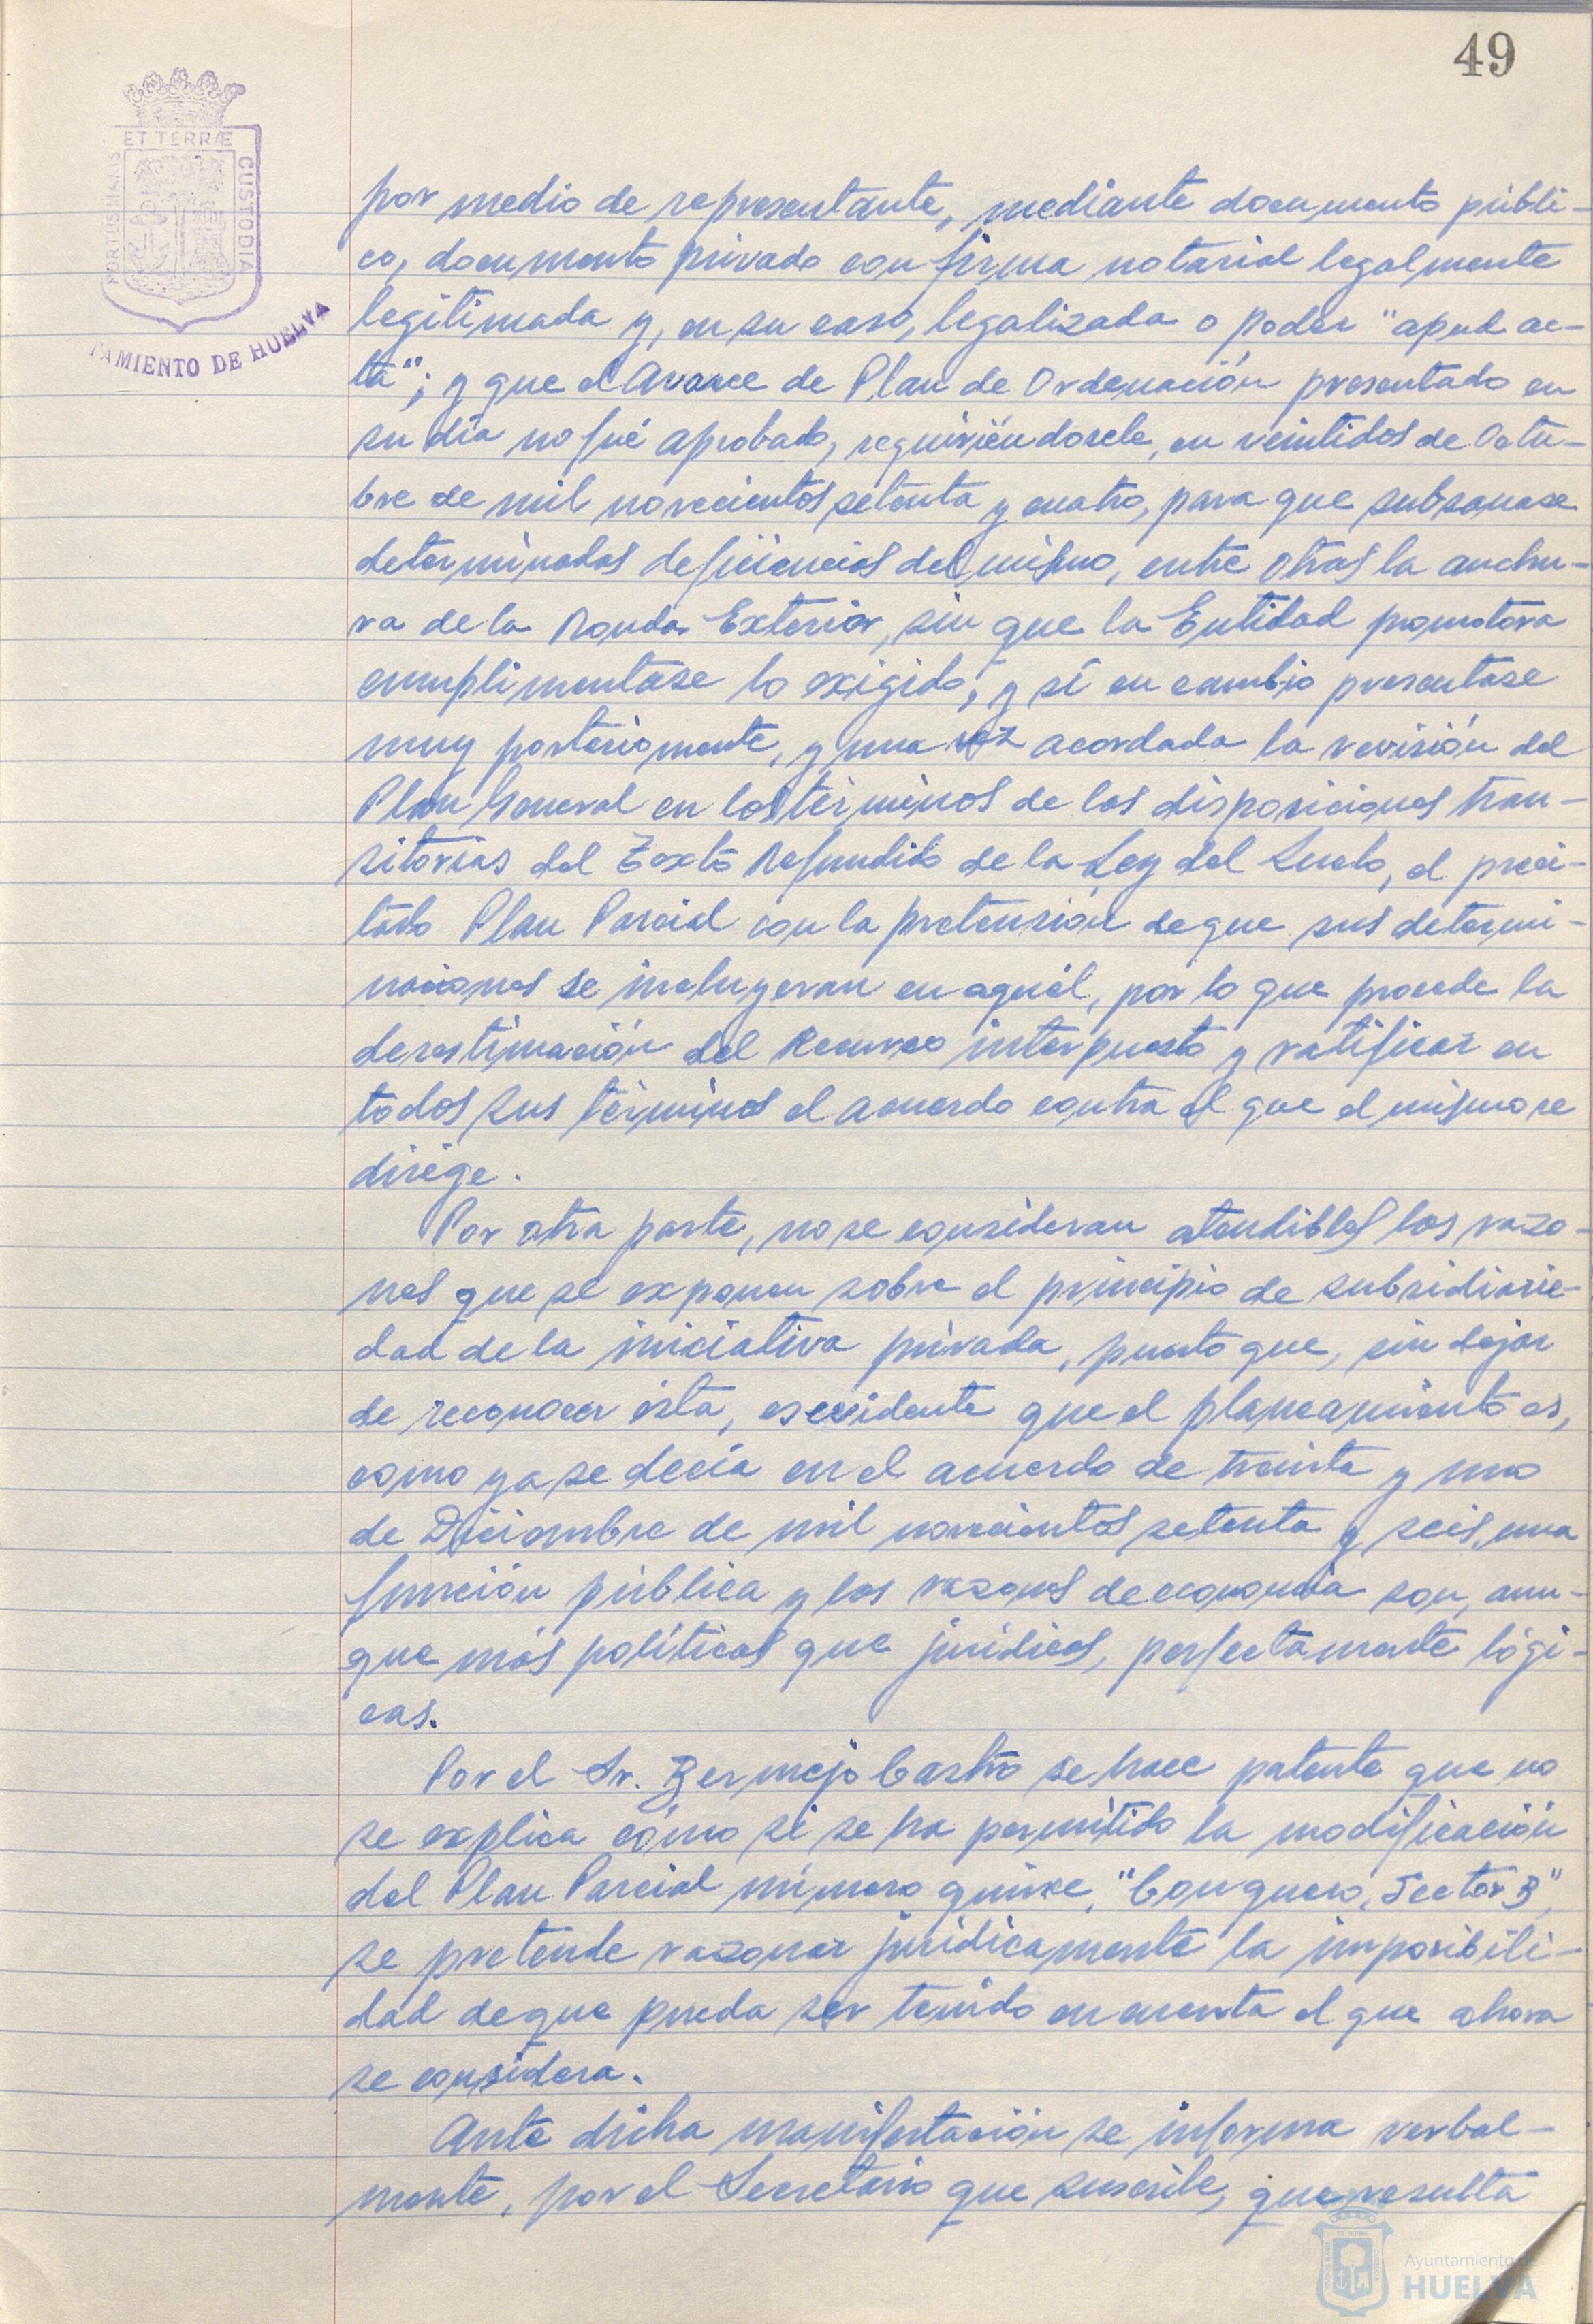 49
ET TERRÆ
PORTUS MARIS
CUSTODIA
TAMIENTO DE HUELVA
por medio de representante, mediante documento públi-
co, documento privado con firma notarial legalmente
legitimada y, en su caso, legalizada o poder "apud ac-
ta"; y que el Avance de Plan de Ordenación presentado en
su día no fué aprobado, requiriéndosele, en veintidos de Octu-
bre de mil novecientos setenta y cuatro, para que subsanase
determinadas deficiencias del mismo, entre otras la anchu-
ra de la Ronda Exterior, sin que la Entidad promotora
cumplimentase lo exigido; y sí en cambio presentase
muy posteriormente, y una vez acordada la revisión del
Plan General en los términos de las disposiciones tran-
sitorias del Texto Refundido de la Ley del Suelo, el preci-
tado Plan Parcial con la pretensión de que sus determi-
naciones se incluyeran en aquél, por lo que procede la
desestimación del Recurso interpuesto y ratificar en
todos sus términos el acuerdo contra el que el mismo se
dirige.
Por otra parte, no se consideran atendibles las razo-
nes que se exponen sobre el principio de subsidiarie-
dad de la iniciativa privada, puesto que, sin dejar
de reconocer ésta, es evidente que el planeamiento es,
como ya se decía en el acuerdo de treinta y uno
de Diciembre de mil novecientos setenta y seis, una
función pública y las razones de economía son, aun-
que más políticas que jurídicas, perfectamente lógi-
cas.
Por el Sr. Bermejo Castro se hace patente que no
se explica cómo si se ha permitido la modificación
del Plan Parcial número quince, "Conquero, Sector B",
se pretende razonar jurídicamente la imposibili-
dad de que pueda ser tenido en cuenta el que ahora
se considera.
Ante dicha manifestación se informa verbal-
mente, por el Secretario que suscribe, que resulta
Ayuntamiento de
HUELVA